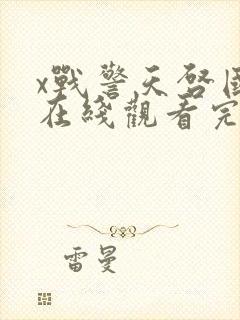 x戰警天啓国
在綫觀看完
雷曼